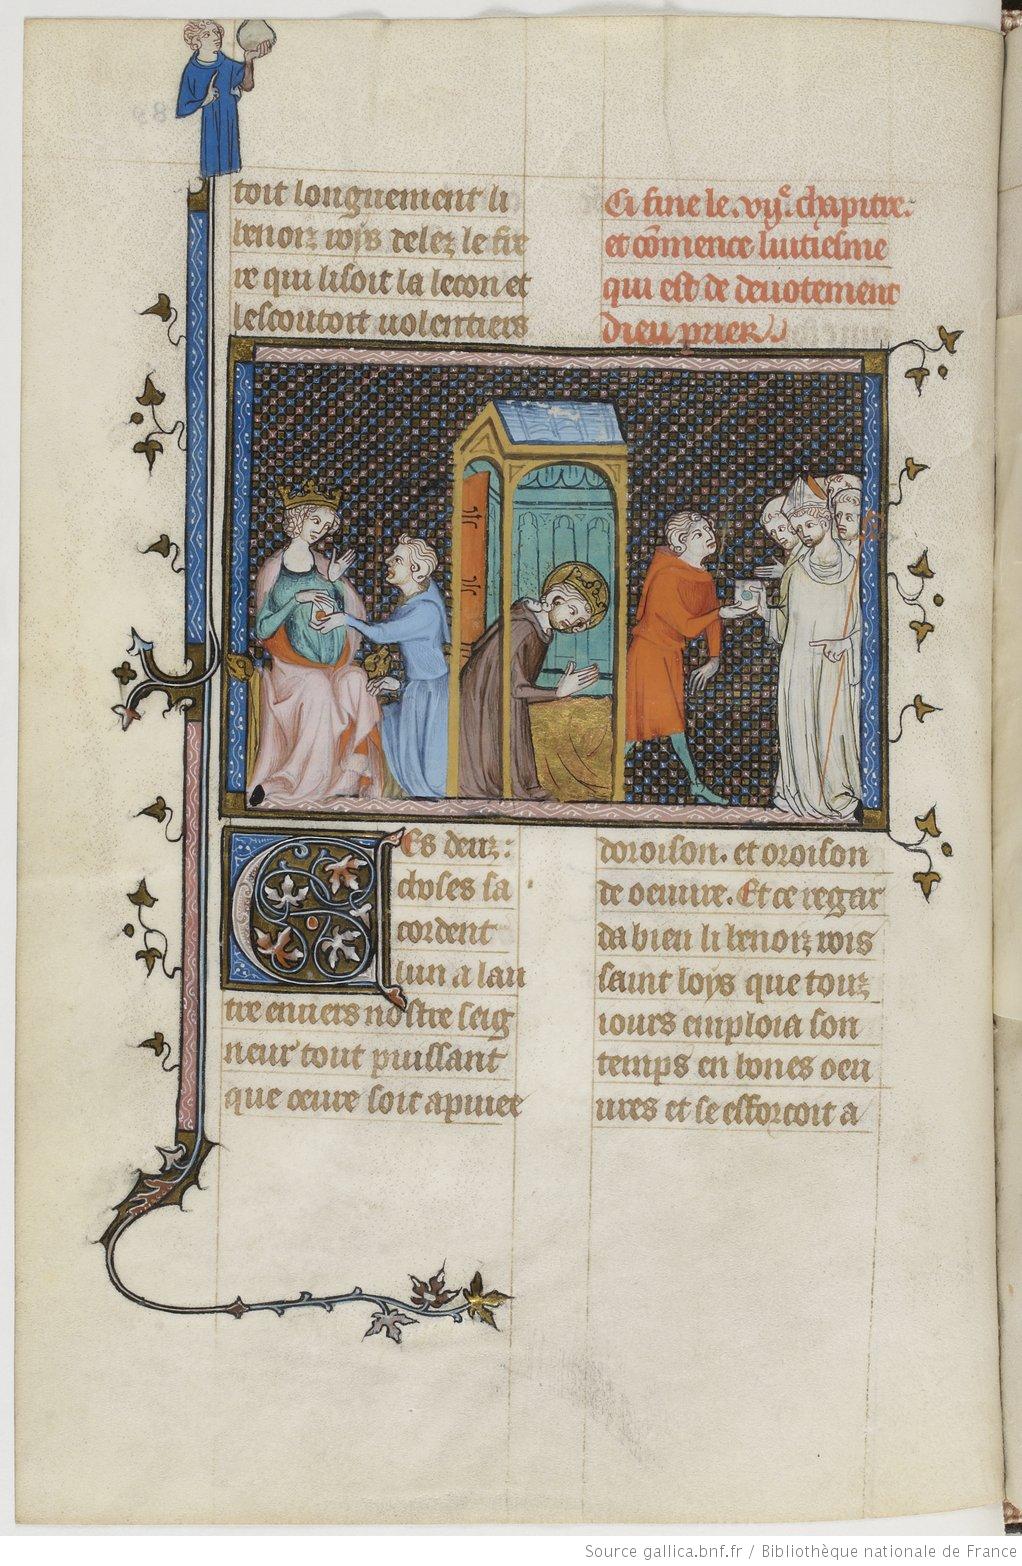 toit longuement li
benoiz roys delez le fre
re qui lisoit la lecon et
lescoutoit uolentiers
Ci fine le .vije. chapitre.
et cōmence luitiesme
qui est de deuotement
dieu prier
Ces deuz :
choses sa
cordent
lun a lau
tre enuers nostre seig
neur tout puissant
que oeuure soit apuiee
doroison. et oroison
de oeuure. Et ce regar
da bien li benoiz rois
saint loys que touz
iours emploia son
temps en bones oeu
ures et se efforcoit a
Source gallica.bnf.fr / Bibliothèque nationale de France